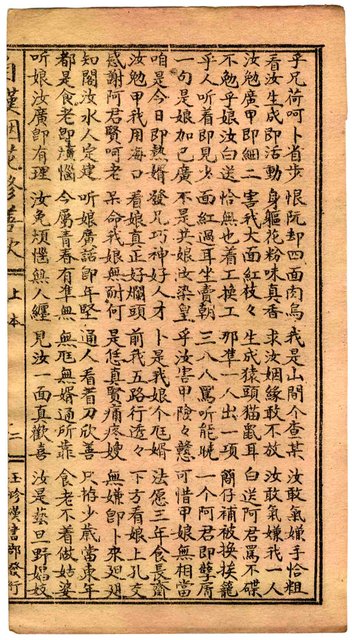 乎兄荷呵卜省步 恨阮却四面肉烏 我是山間个查某 汝敢氣嫌手恰粗
看汝生成即活動 身軀花粉味真香 求汝姻緣敢不放 汝敢氣嫌我一人
汝勉廣甲即細二 害我大面紅枝々 生成猿頭猫鼠耳 白送阿君罵不碟
不勉乎娘汝白送 恰無也着工換工 那準一人出一項 簡仔補被換挨籠
乎人听着即見少 面紅過耳坐賣朝 三八八罵听能曉 一个阿君即孽屑
一句是娘加巳廣 不是共娘汝染皇 乎汝害甲險々戇 可惜甲娘無相當
咱是今日即熱婿 發兄巧神好人才 卜是我娘个尫婿 法愿三年食長齋
汝勉甲我用海口 看娘真正好爛頭 前我五路行透々 下方看娘上孔交
感謝阿君賢呵老 呆命我娘無耐何 是恁真賢痛疼嫂 無嫌即卜來
知閣汝水人定建 听娘廣話卽年堅 通人看着刀欣善 只拾少歲當東年
都是食老即煩惱 今屬青春有準無 無尫無婿通所靠 食老不着做姑婆
听娘汝廣卽有理 汝免煩惱無人纏 見汝一面真歡喜 汝是藝旦野娼妓
自嘆烟花修善歌 上本 二 玉珍漢書部發行